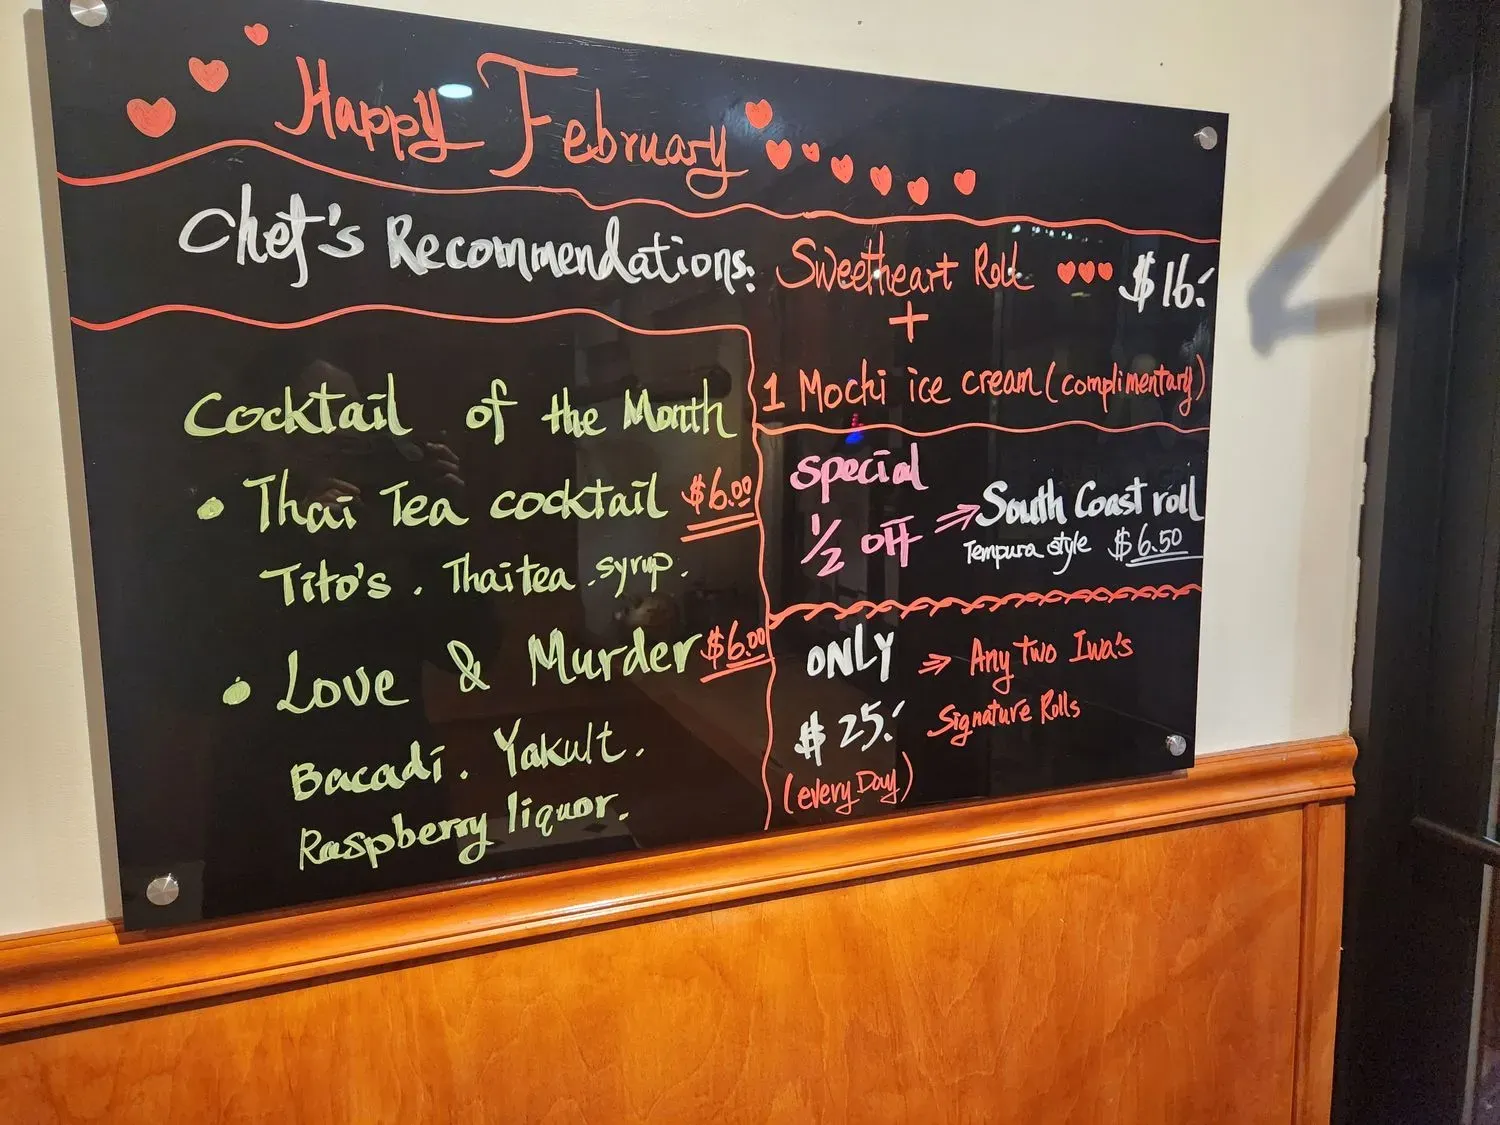 Happy February
Chef's Recommendations:
Sweetheart Roll $16.-
+
1 Mochi ice cream (complimentary)
Cocktail of the Month
• Thai Tea cocktail $6.00
Tito's . Thai tea . syrup.
• Love & Murder $6.00
Bacadi . Yakult.
Raspberry liquor.
special
1/2 off ⇒ South Coast roll
Tempura style $6.50
ONLY ⇒ Any Two Iwa's
$25.- Signature Rolls
(every Day)